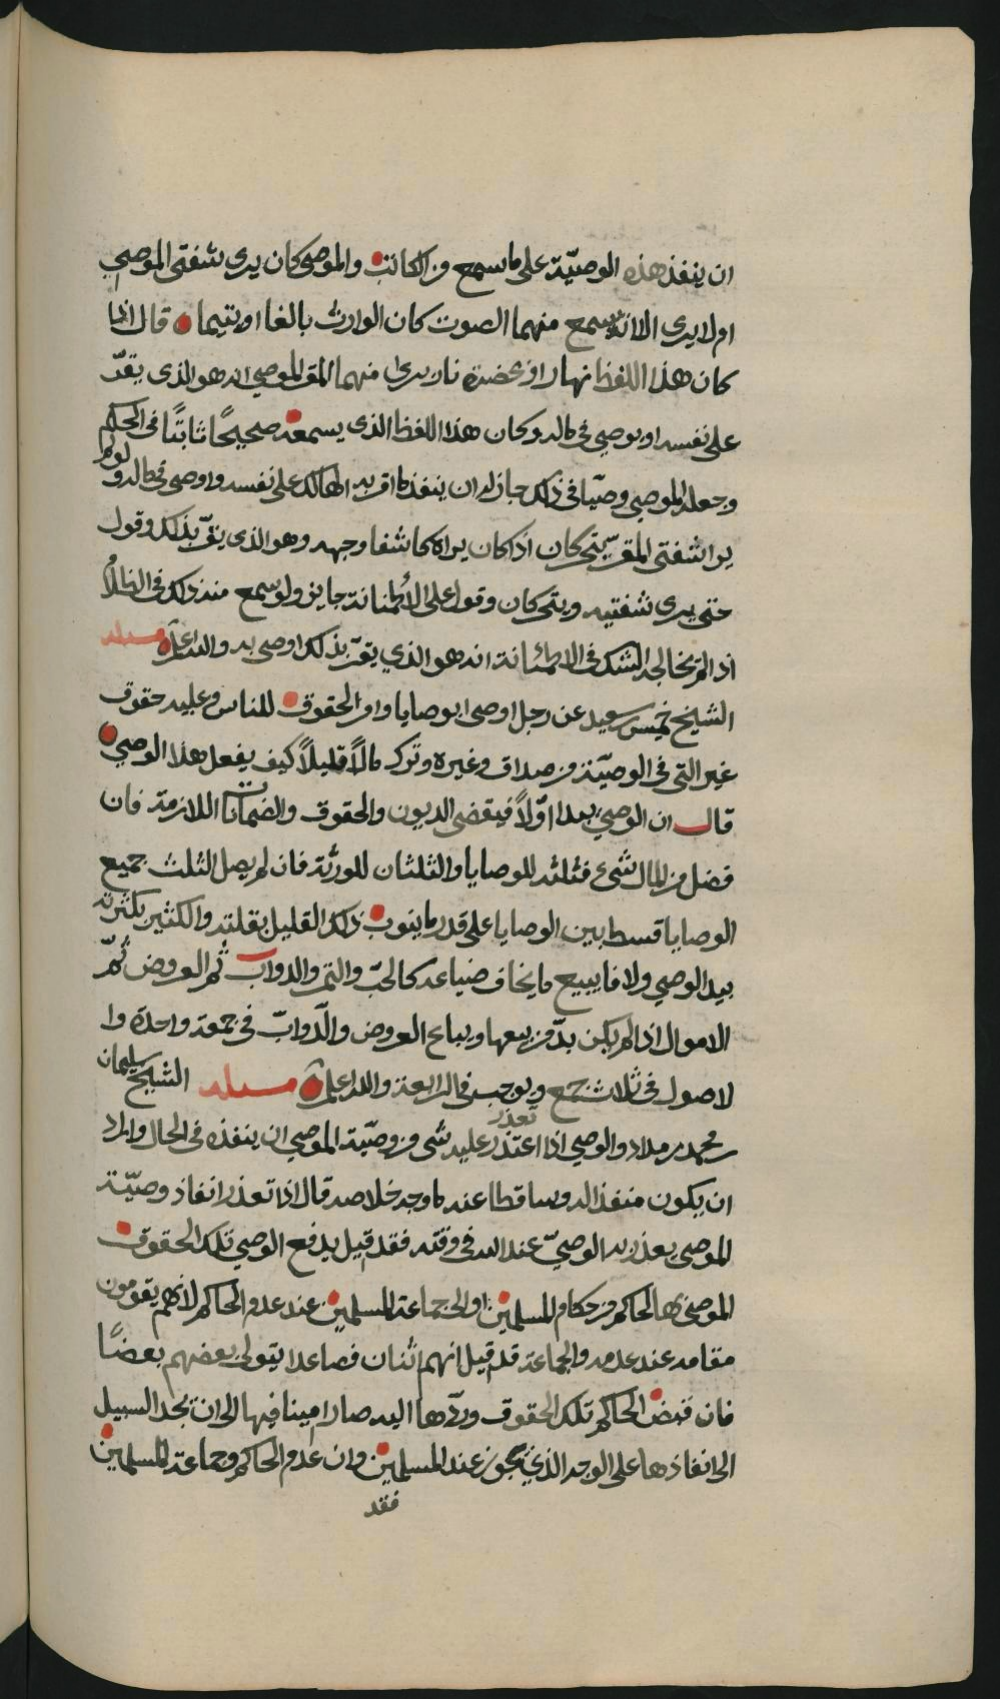 ان ينفذ هذه الوصيّة على ما سمع من الكاتب والموصي كان يرى شفتي الموصي
او لا يرى الا انه يسمع منهما الصوت كان الوارث بالغا او يتيما قال اذا
كان هذا اللفظ نهارا او بحضرة نار يرى منهما المقر الموصي انه هو الذي يقرّ
على نفسه او يوصي في ماله وكان هذا اللفظ الذي يسمعه صحيحًا ثابتًا في الحكم
وجعله الموصي وصيّا في ذلك جاز له ان ينفذ ما اقر به الهالك على نفسه واوصى في ماله ولو لم
ير شفتي المقر يتحركان اذا كان يراه كاشفا وجهه وهو الذي يقرّ بذلك وقول
حتى يرى شفتيه ويتحركان وقول على الاطمئنانة جايز ولو سمع منه ذلك في الظلام
اذا لم يخالجه الشك في الاطمئنانة انه هو الذي يقرّ بذلك اوصى به والله اعلم مسئلة
الشيخ خميس بن سعيد عن رجل اوصى بوصايا واقر الحقوق للناس وعليه حقوق
غير التي في الوصيّة من صداق وغيره وترك مالًا قليلًا كيف يفعل هذا الوصي
قال ان الوصي يبدا اوّلًا فيقضي الديون والحقوق والضمانات اللازمة فان
فضل من المال شيء فثلثه للوصايا والثلثان للورثة فان لم يصل الثلث جميع
الوصايا قسط بين الوصايا على قدر ما ينوب ذلك القليل بقلته والكثير بكثرته
بيد الوصي ولا فا يبيع ما يخاف ضياعه كالحبّ والتمر والدواب ثم العروض ثمّ
الاموال اذا لم يكن بدّ من بيعها ويباع العروض والدّوابّ في جمعة واحدة وا
لاصول في ثلاث جمع ويوجب في الرابعة والله اعلم مسئلة الشيخ سليمان
بن محمد بن مداد والوصي اذا اعتذر تعذر عليه شي من وصيّة الموصي ان ينفذه في الحال واراد
ان يكون منفذ الدوساقطا عنه ما وجه خلاصه قال اذا تعذر انفاذ وصيّة
الموصي يعذر به الوصيّ عند الله في وقته فقد قيل يدفع الوصي تلك الحقوق
الموصى بها الحاكم من حكام المسلمين او الى جماعة المسلمين عند عدم الحاكم لانهم يقومون
مقامه عند عدمه والجماعة قد قيل انهم اثنان فصاعدا يتولى بعضهم بعضًا
فان قبض الحاكم تلك الحقوق وردّها اليه صار امينا فيها الى ان يجد السبيل
الى انفاذها على الوجه الذي يجوز عند المسلمين وان عدم الحاكم وجماعة المسلمين
فقد